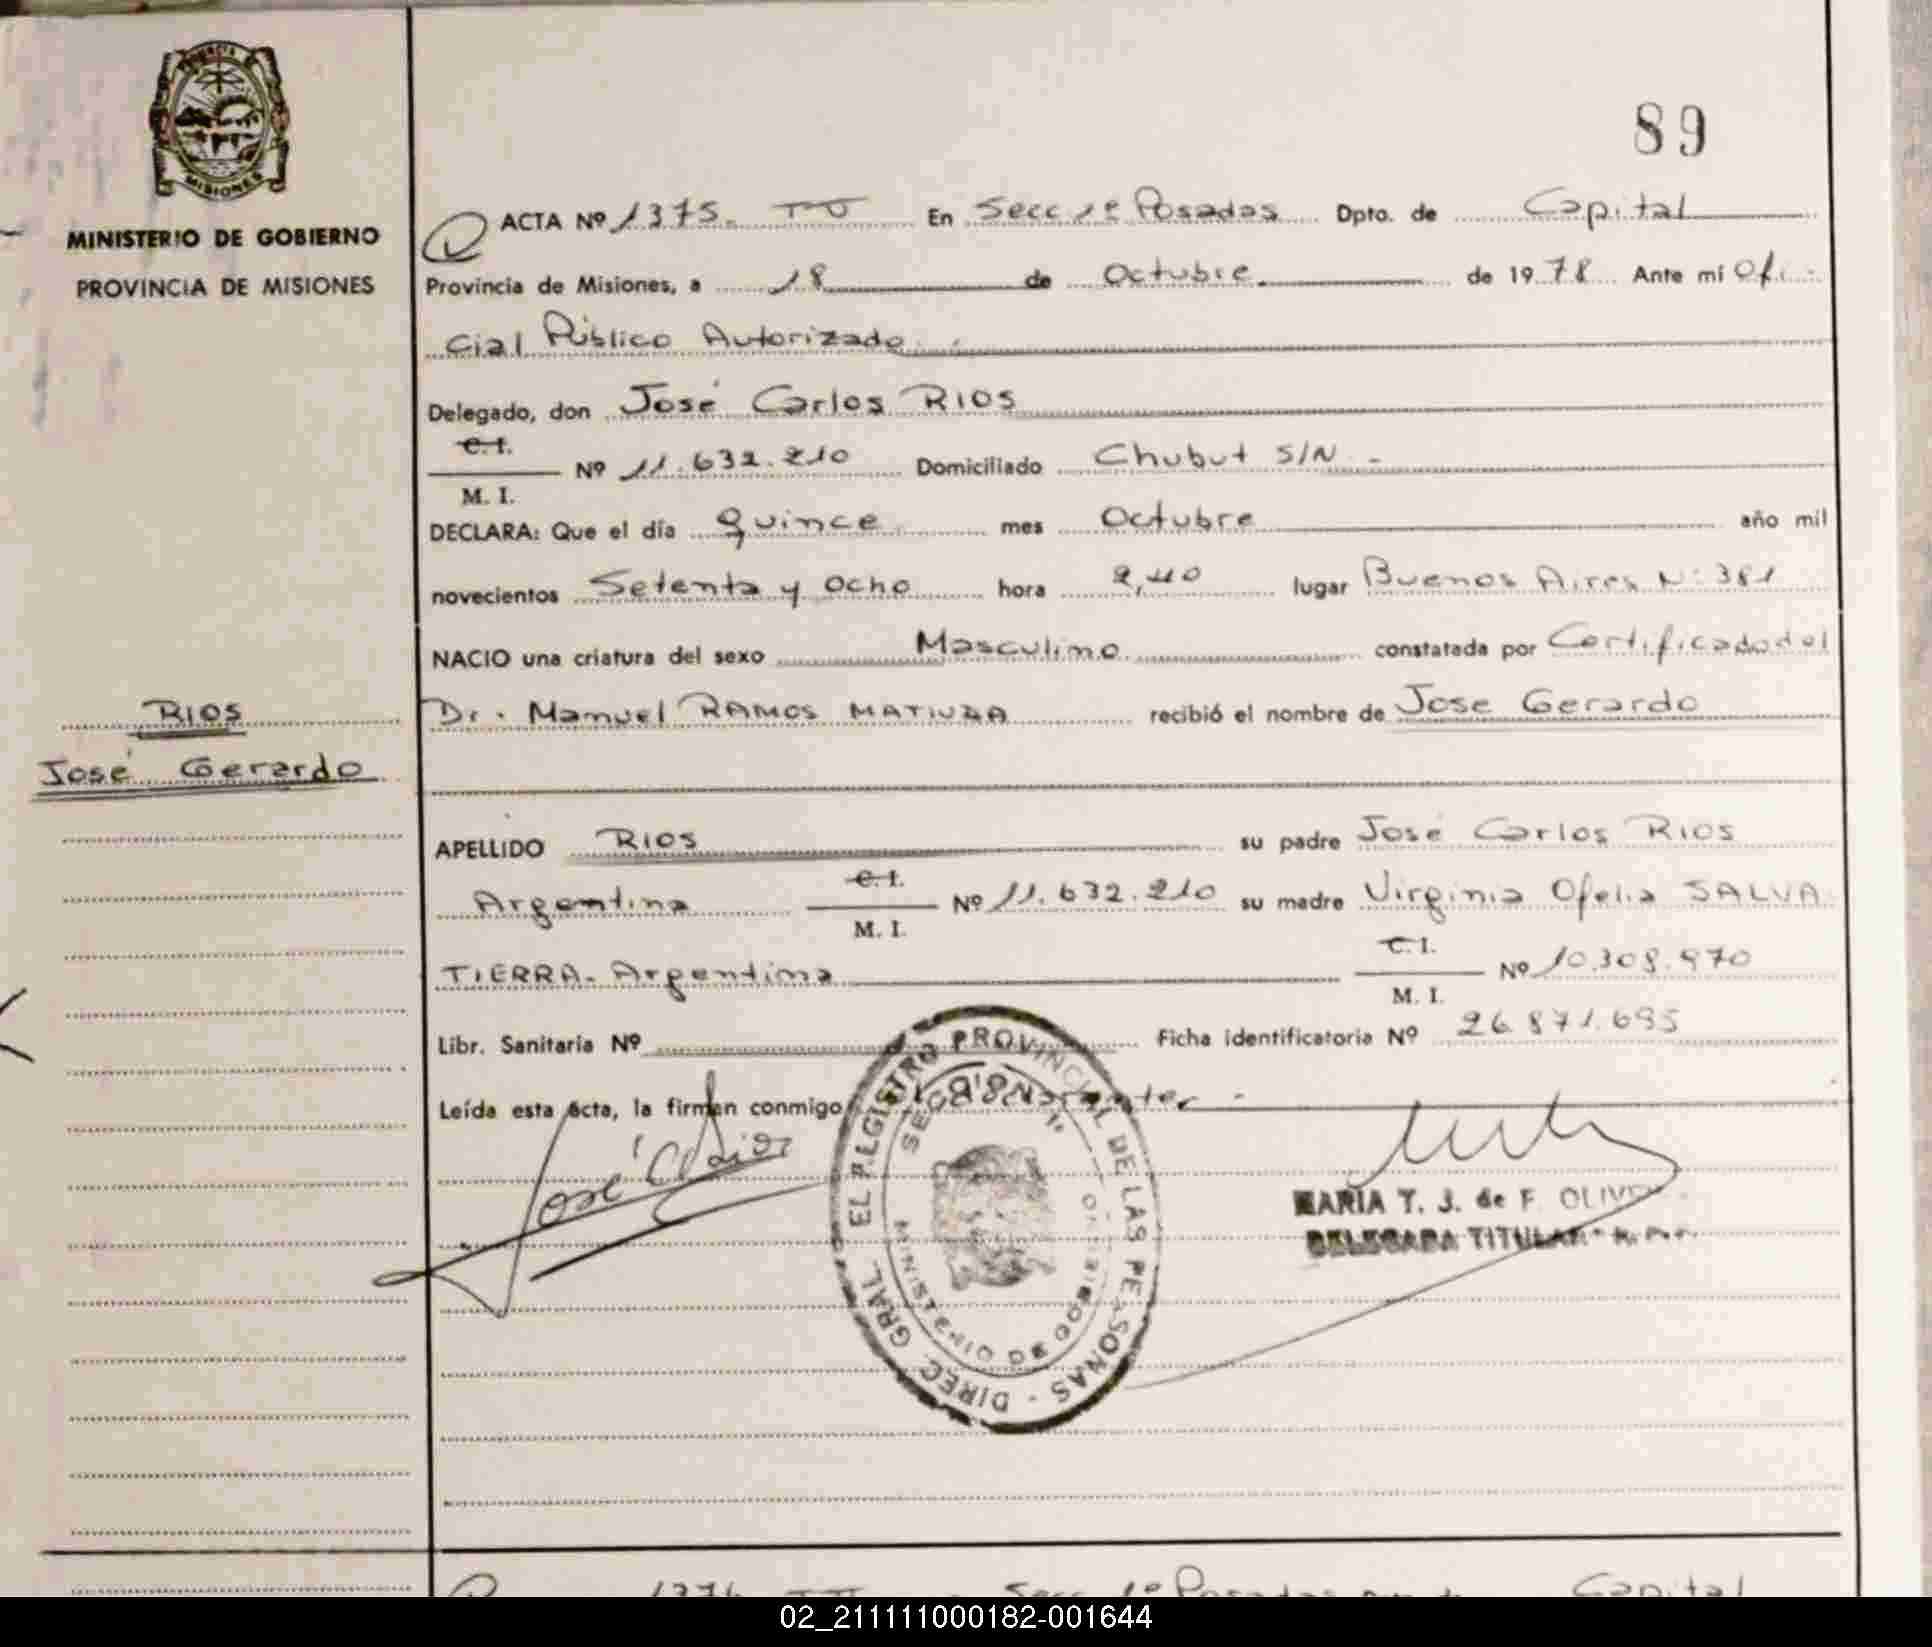 PROVINCIA DE
MISIONES
MINISTERIO DE GOBIERNO
PROVINCIA DE MISIONES
89
ACTA Nº 1375. En Secc 1º Posadas Dpto. de Capital
Provincia de Misiones, a 18 de Octubre de 1978 Ante mí Ofi-
cial Público Autorizado
Delegado, don José Carlos RIOS
C. I.
Nº 11.632.210 Domiciliado Chubut S/N.-
M. I.
DECLARA: Que el día quince mes Octubre año mil
novecientos Setenta y Ocho hora 2,40 lugar Buenos Aires Nº 381
NACIO una criatura del sexo Masculino constatada por Certificado del
Dr. Manuel RAMOS recibió el nombre de Jose Gerardo
RIOS
José Gerardo
APELLIDO RIOS su padre José Carlos RIOS
Argentina C. I. Nº 11.632.210 su madre Virginia Ofelia SALVA
M. I.
TIERRA- Argentina C. I. Nº 10.308.970
M. I.
Libr. Sanitaria Nº Ficha identificatoria Nº 26.871.695
Leída esta acta, la firman conmigo
José C Rios
DIREC. GRAL. EL REGISTRO PROVINCIAL DE LAS PERSONAS
MINISTERIO DE GOBIERNO
MARIA T. J. de F. OLIVE
DELEGADA TITULAR
1376 Secc 1º Posadas Capital
02_211111000182-001644